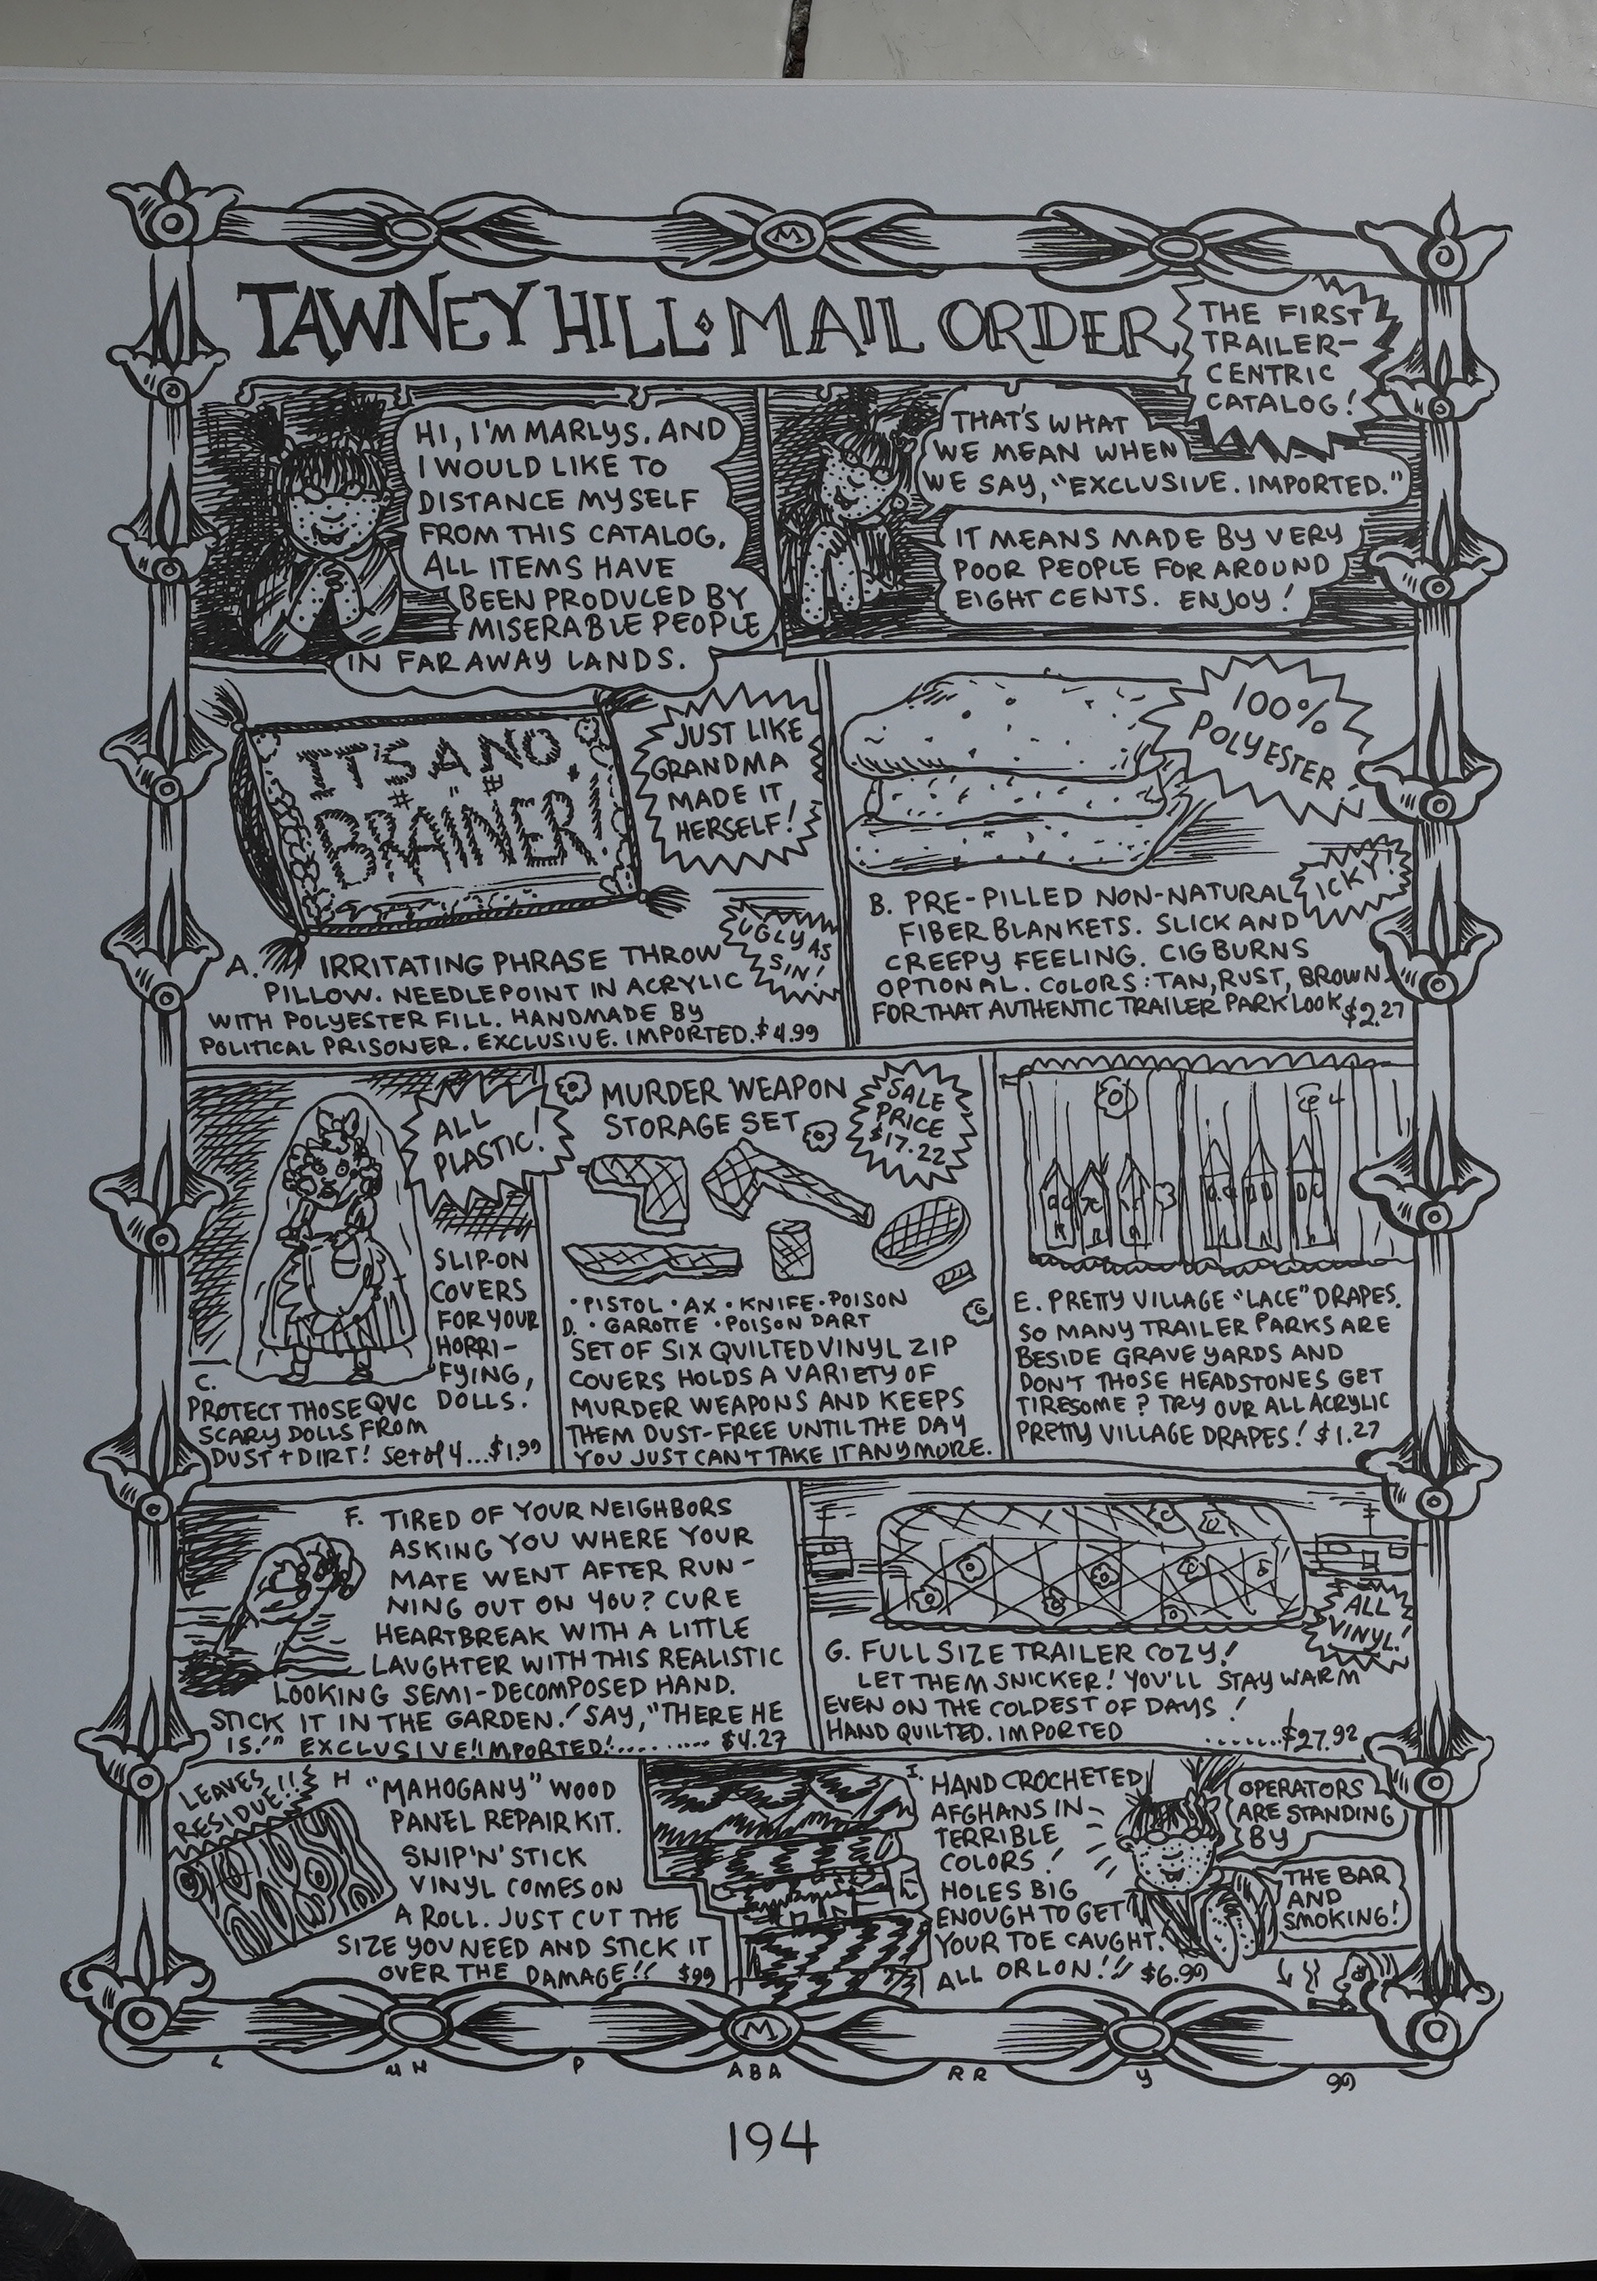 M
TAWNEY HILL MAIL ORDER
THE FIRST
TRAILER-
CENTRIC
CATALOG!
HI, I'M MARLYS. AND
I WOULD LIKE TO
DISTANCE MYSELF
FROM THIS CATALOG.
ALL ITEMS HAVE
BEEN PRODUCED BY
MISERABLE PEOPLE
IN FAR AWAY LANDS.
THAT'S WHAT
WE MEAN WHEN
WE SAY, "EXCLUSIVE. IMPORTED."
IT MEANS MADE BY VERY
POOR PEOPLE FOR AROUND
EIGHT CENTS. ENJOY!
IT'S A NO
BRAINER!
JUST LIKE
GRANDMA
MADE IT
HERSELF!
UGLY AS
SIN!
A. IRRITATING PHRASE THROW
PILLOW. NEEDLEPOINT IN ACRYLIC
WITH POLYESTER FILL. HANDMADE BY
POLITICAL PRISONER. EXCLUSIVE. IMPORTED. $4.99
100%
POLYESTER
ICKY!
B. PRE-PILLED NON-NATURAL
FIBER BLANKETS. SLICK AND
CREEPY FEELING. CIG BURNS
OPTIONAL. COLORS: TAN, RUST, BROWN
FOR THAT AUTHENTIC TRAILER PARK LOOK $2.27
ALL
PLASTIC!
SLIP-ON
COVERS
FOR YOUR
HORRI-
FYING,
DOLLS.
C.
PROTECT THOSE QVC
SCARY DOLLS FROM
DUST + DIRT! Set of 4...$1.99
MURDER WEAPON
STORAGE SET
SALE
PRICE
$17.22
• PISTOL • AX • KNIFE • POISON
D. • GAROTTE • POISON DART
SET OF SIX QUILTED VINYL ZIP
COVERS HOLDS A VARIETY OF
MURDER WEAPONS AND KEEPS
THEM DUST-FREE UNTIL THE DAY
YOU JUST CAN'T TAKE IT ANYMORE.
E. PRETTY VILLAGE "LACE" DRAPES.
SO MANY TRAILER PARKS ARE
BESIDE GRAVE YARDS AND
DON'T THOSE HEADSTONES GET
TIRESOME? TRY OUR ALL ACRYLIC
PRETTY VILLAGE DRAPES! $1.27
F. TIRED OF YOUR NEIGHBORS
ASKING YOU WHERE YOUR
MATE WENT AFTER RUN-
NING OUT ON YOU? CURE
HEARTBREAK WITH A LITTLE
LAUGHTER WITH THIS REALISTIC
LOOKING SEMI-DECOMPOSED HAND.
STICK IT IN THE GARDEN! SAY, "THERE HE
IS!" EXCLUSIVE! IMPORTED!.......... $4.27
ALL
VINYL!
G. FULL SIZE TRAILER COZY!
LET THEM SNICKER! YOU'LL STAY WARM
EVEN ON THE COLDEST OF DAYS!
HAND QUILTED. IMPORTED .......$27.92
LEAVES
RESIDUE!!
H "MAHOGANY" WOOD
PANEL REPAIR KIT.
SNIP 'N' STICK
VINYL COMES ON
A ROLL. JUST CUT THE
SIZE YOU NEED AND STICK IT
OVER THE DAMAGE!! $99
I. HAND CROCHETED
AFGHANS IN
TERRIBLE
COLORS!
HOLES BIG
ENOUGH TO GET
YOUR TOE CAUGHT.
ALL ORLON!! $6.99
OPERATORS
ARE STANDING
BY
THE BAR
AND
SMOKING!
M
L UN P ABA RR Y 99
194